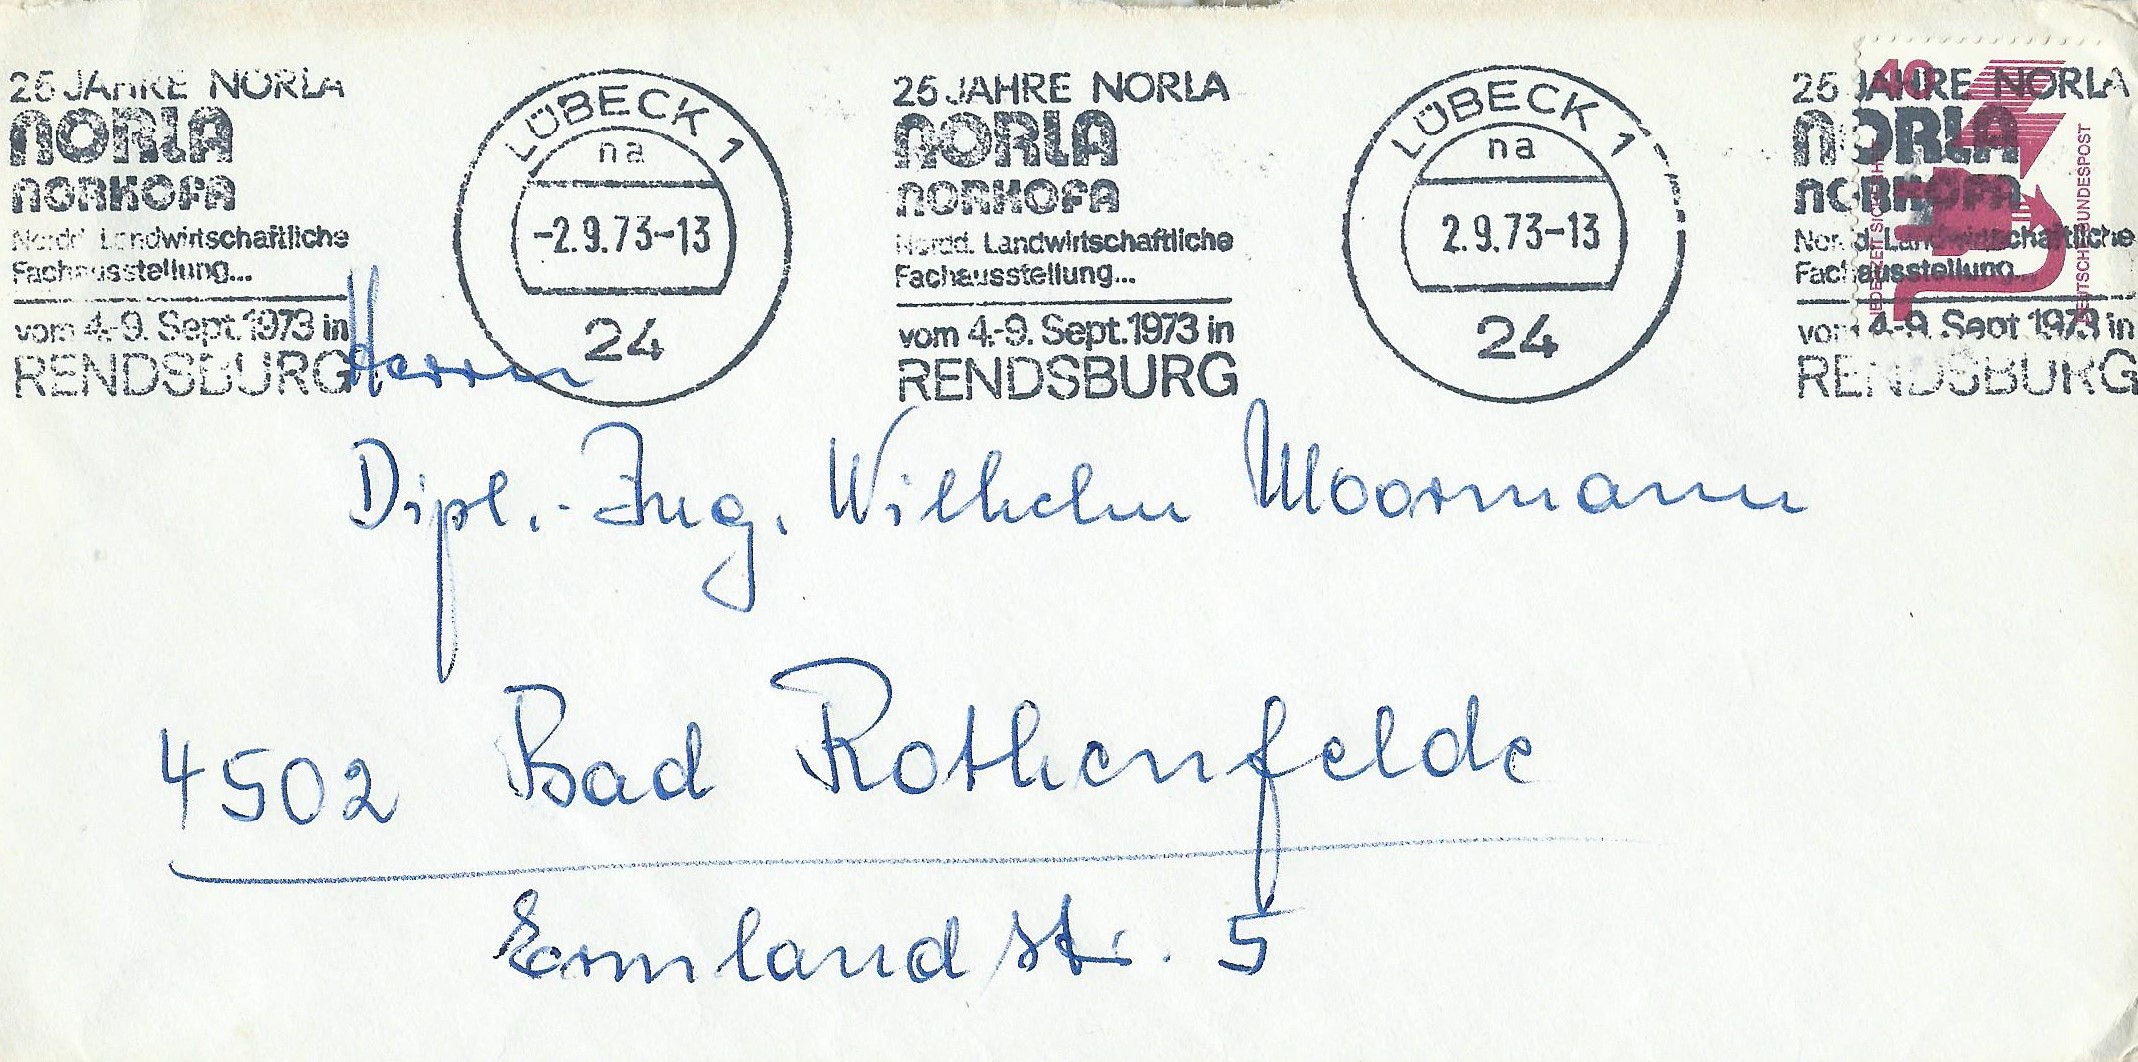 25 JAHRE NORLA
NORLA
NORKOFA
Nordd. Landwirtschaftliche
Fachausstellung...
vom 4.-9. Sept. 1973 in
RENDSBURG
LÜBECK 1
na
-2.9.73-13
24
25 JAHRE NORLA
NORLA
NORKOFA
Nordd. Landwirtschaftliche
Fachausstellung...
vom 4.-9. Sept. 1973 in
RENDSBURG
LÜBECK 1
na
2.9.73-13
24
25 JAHRE NORLA
NORLA
NORKOFA
Nordd. Landwirtschaftliche
Fachausstellung...
vom 4.-9. Sept 1973 in
RENDSBURG
40
JEDERZEIT SICHERHEIT
DEUTSCHE BUNDESPOST
Herrn
Dipl.-Ing. Wilhelm Moormann
4502 Bad Rothenfelde
Ermlandstr. 5